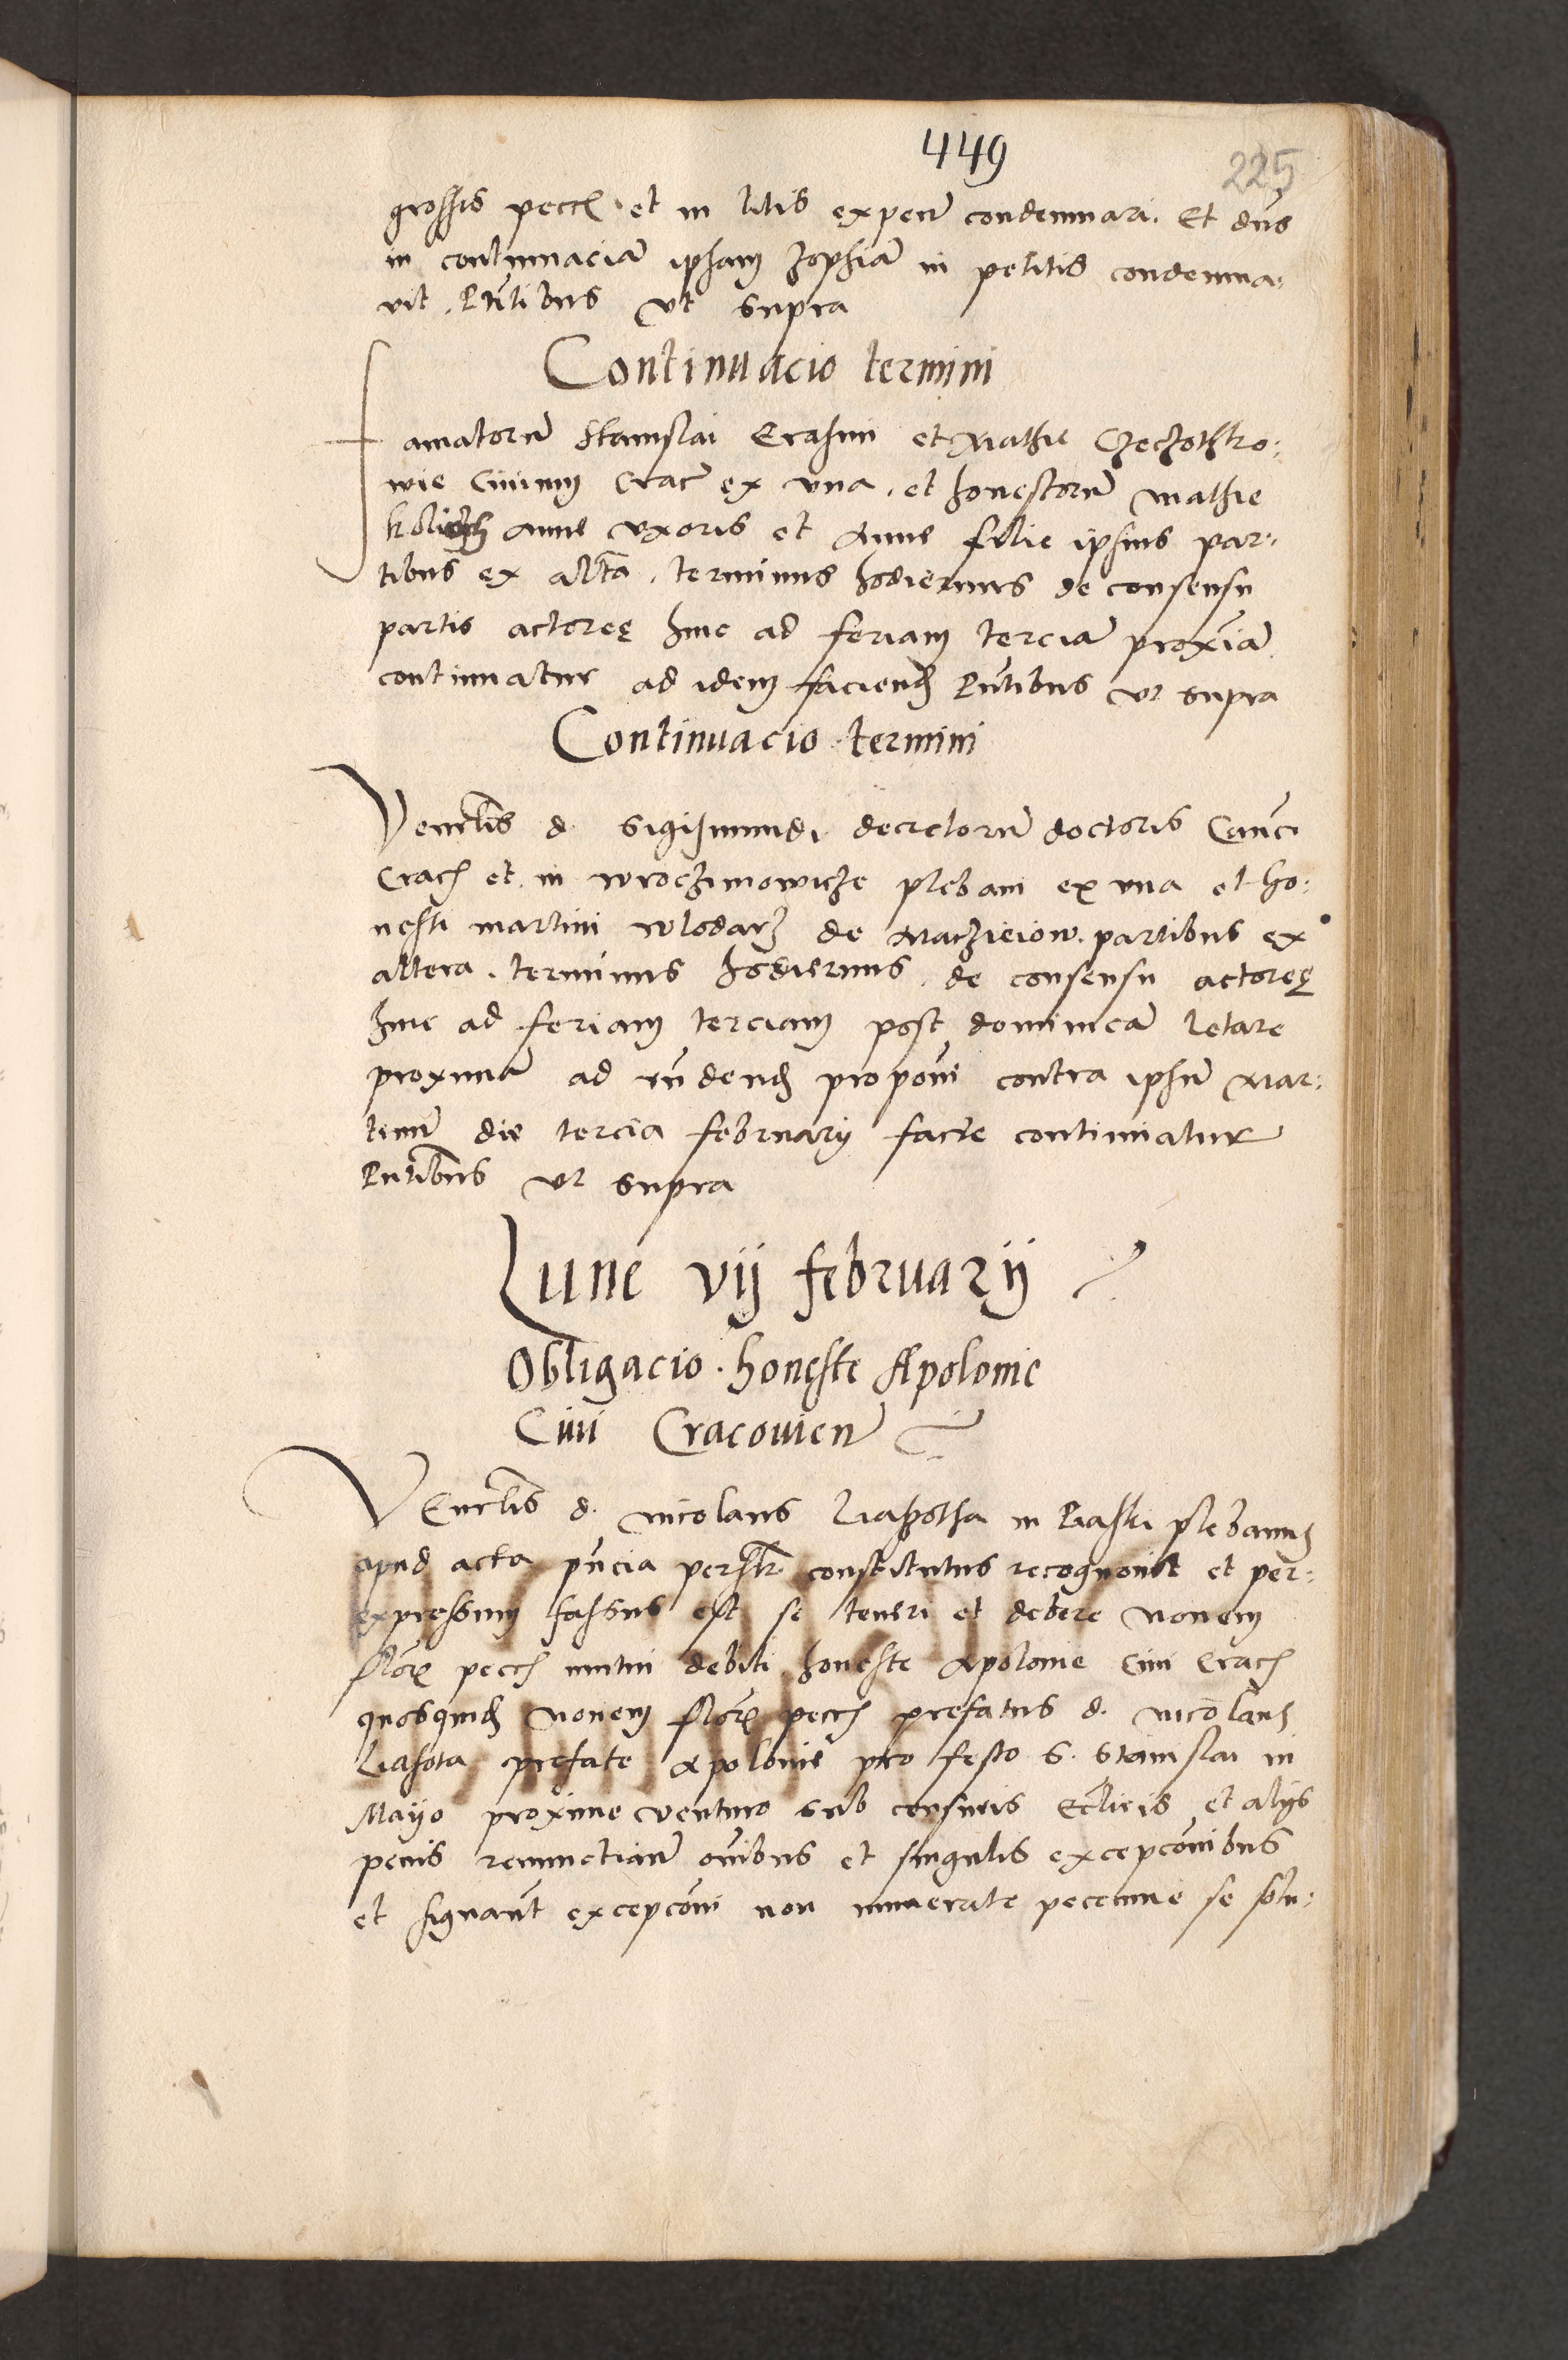 449
225
grossis pecc et in litis expen condemnari. Et dns
in contumaciam ipsam Zophiam in petitis condemna:
vit. Pntibus vt supra
Continuacio termini
Famatorum Stanislai Erasmi et Mathie
wie Ciuium Crac ex vna. et honestorum mathie
Anne vxoris et Anne filie ipsius par:
tibus ex altra. terminus hodiernus de consensu
partis actoreę hinc ad feriam terciam proximam
continuatur ad idem faciend Pntibus vt supra
Continuacio termini
Venerlis d. Sigismundi decretorum doctoris Canci
Crac et in wroczimowicze plebani ex vna et ho:
nesti martini wlodarz de Maczieiow. partibus ex
altera. terminus hodiernus. de consensu actoreę
hinc ad feriam terciam post dominicam letare
proximam ad rndend proponi contra ipsum Mar:
tinum die tercia february facte continuatur
Pntibus vt supra
Lune vij februarij
Obligacio. honeste Apolonie
Ciui Cracouien
Venerlis d. nicolaus Liaszotha in Piaski plebanus
apud acta pncia personlr constitutus recognouit et per:
expressum fassus est se teneri et debere nouem
flor pecc mutui debiti honeste Apolonie Ciui Crac
quosquid nouem flor pecc prefatus d. nicolaus
Liasota prefate Apolonie pro festo S. Stanislai in
Mayo proxime venturo sub censuris Eclicis et alijs
penis renunctiam omibus et singulis excepconibus
et signant excepconi non numerate peccunie se solu: